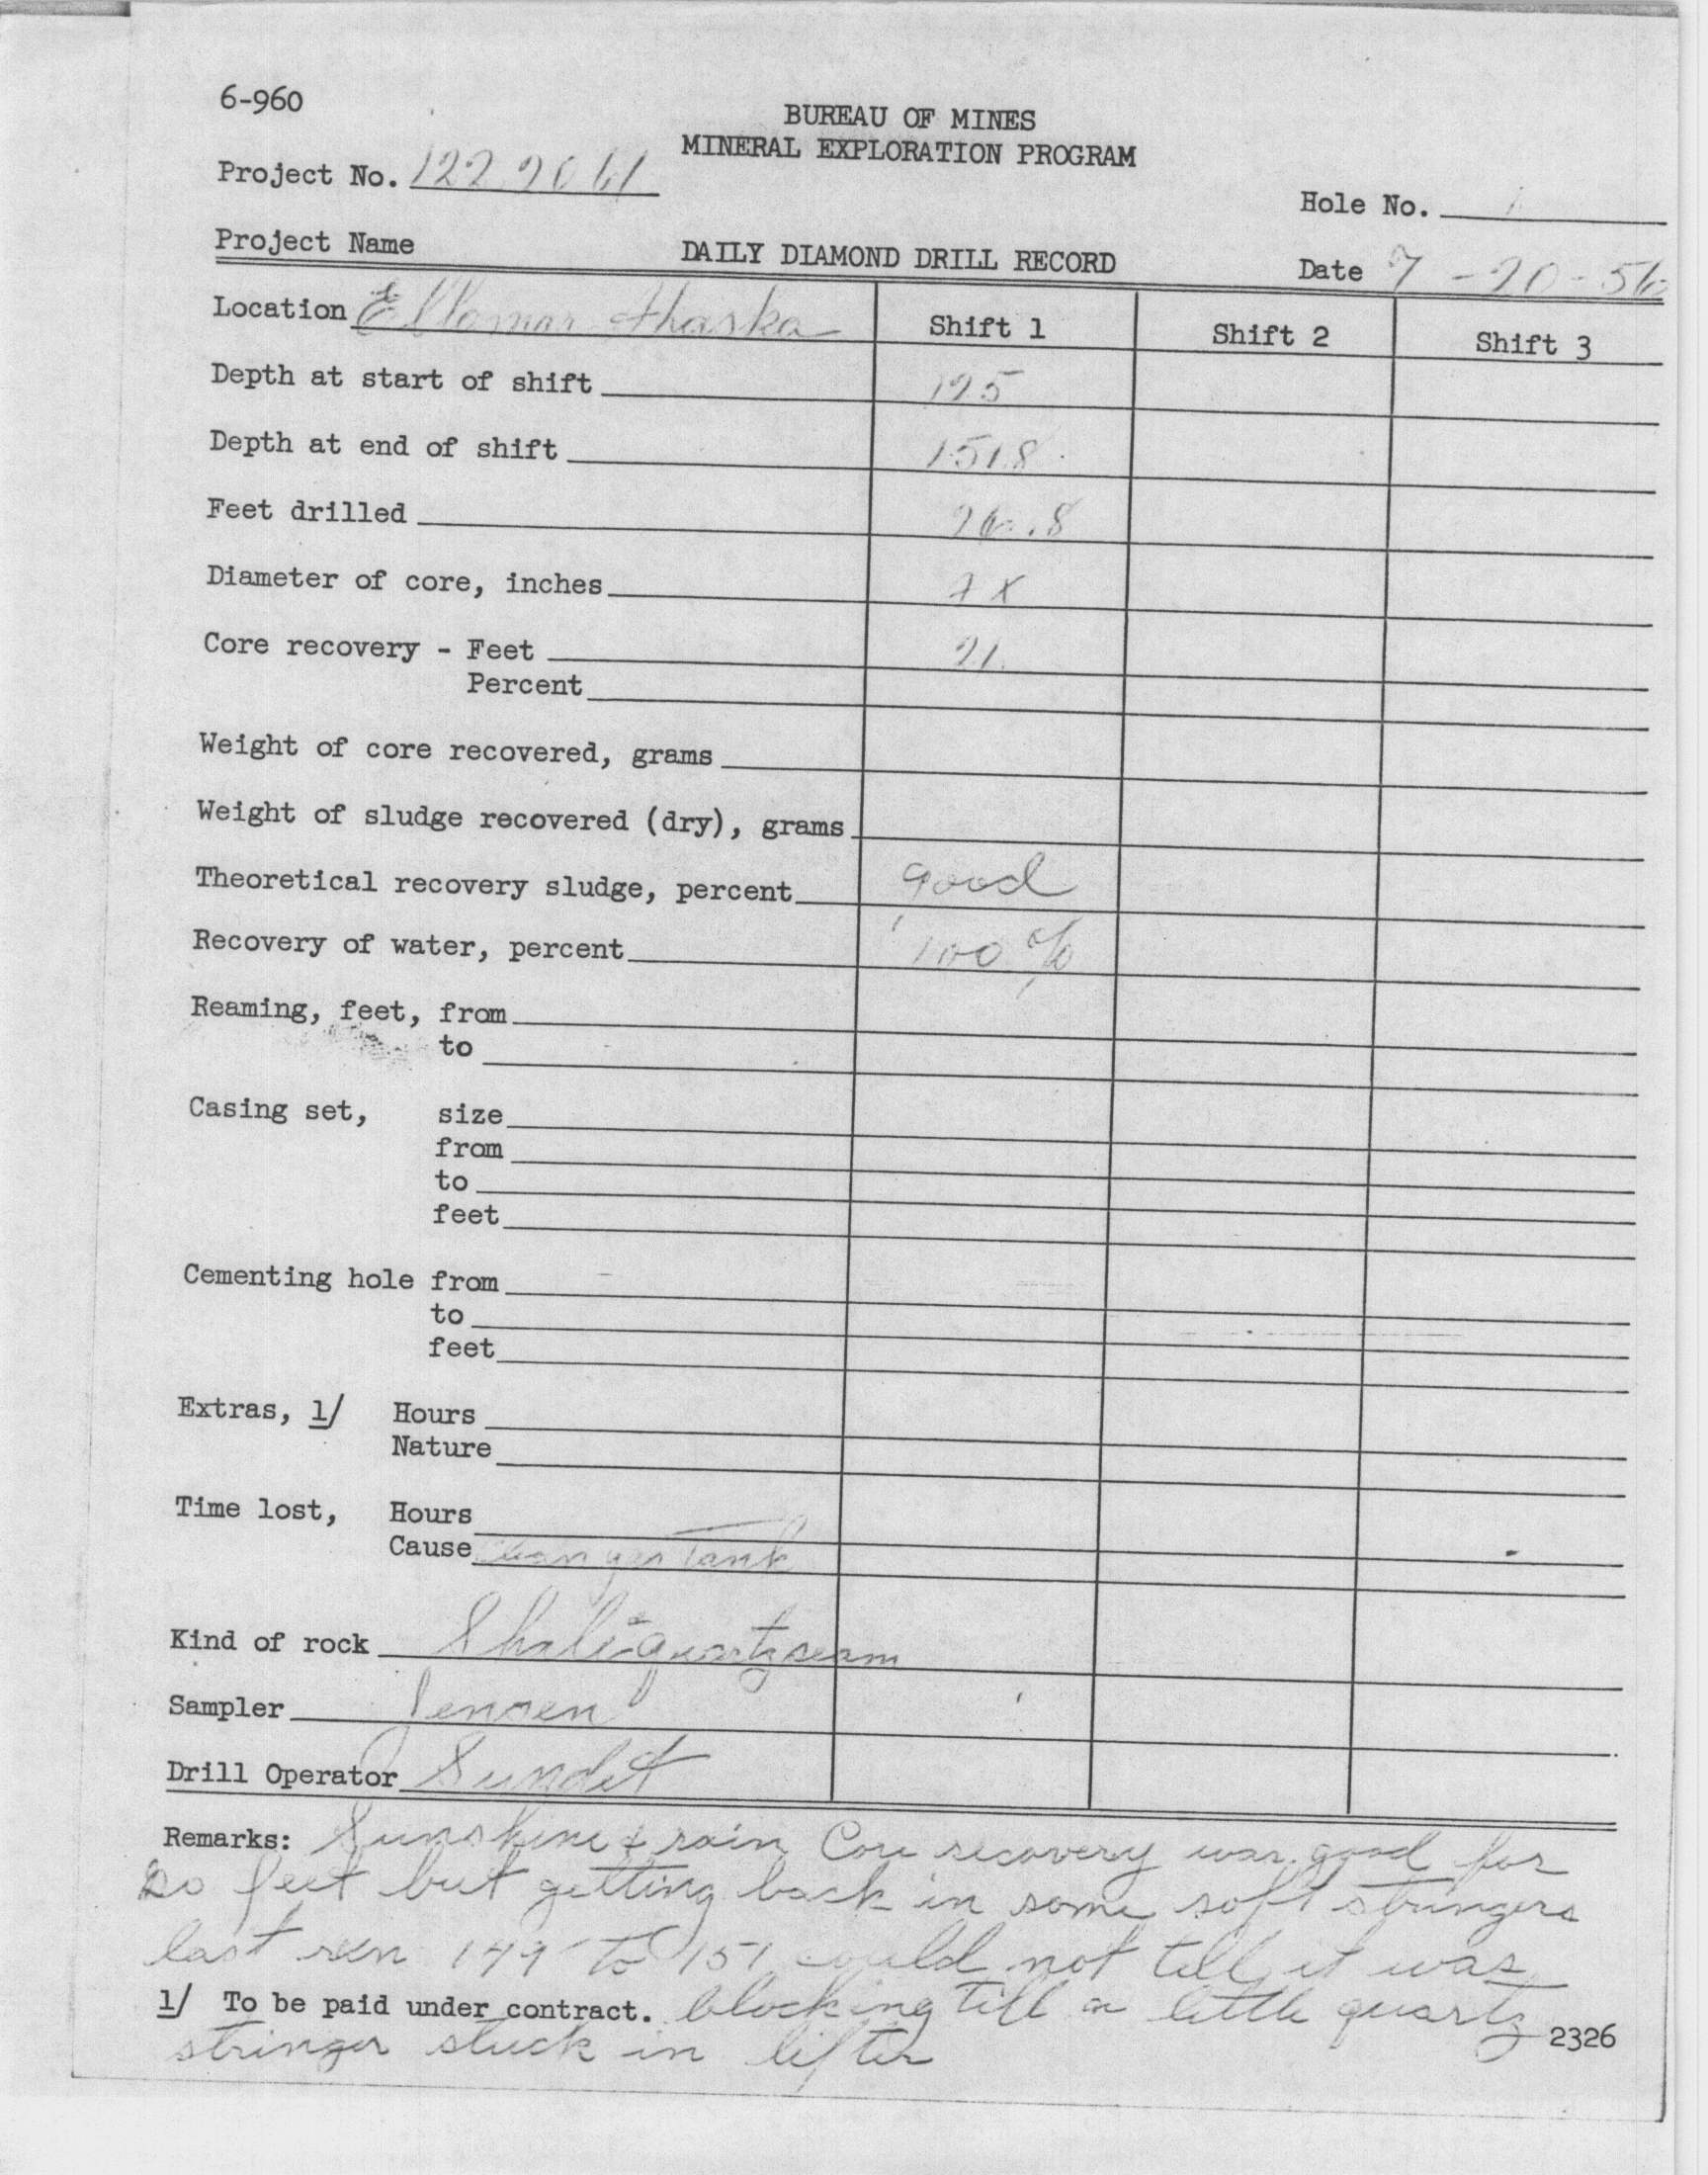 6-960
BUREAU OF MINES
MINERAL EXPLORATION PROGRAM
Project No. 122.2061
Hole No. 1
Project Name
DAILY DIAMOND DRILL RECORD
Date 7-20-56
Location Ellamar Alaska Shift 1 Shift 2 Shift 3
Depth at start of shift 125
Depth at end of shift 151.8
Feet drilled 26.8
Diameter of core, inches
Core recovery - Feet 21
Percent
Weight of core recovered, grams
Weight of sludge recovered (dry), grams
Theoretical recovery sludge, percent good
Recovery of water, percent 100 %
Reaming, feet, from
to
Casing set, size
from
to
feet
Cementing hole from
to
feet
Extras, 1/ Hours
Nature
Time lost, Hours
Cause Tank
Kind of rock Shale-quartz seam
Sampler Jensen
Drill Operator
Remarks: Sunshine & rain Core recovery was good for
20 feet but getting back in some soft stringers
last run 149 to 151 could not tell it was
1/ To be paid under contract. blocking till a little quartz
stringer stuck in lifter
2326